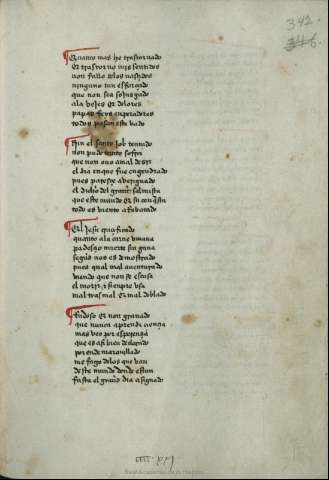 342.
346.
Quanto mas he trastornado
Et trastorno mis sentidos
non fallo delos nasçidos
ninguno tan esforçado
que non sea sojusgado
ala vejes et dolores
papas Reys enperadores
todos pasan este vado
Avn el santo Job tentado
non pudo tanto sofrir
que non ouo amal desir
el dia en que fue engendrado
pues paresçe aberiguado
el dicho del grant salmista
que este mundo et su conquista
todo es viento
Et Jesu
quanto ala carne vmana
padesçio muerte sin gana
segunt nos es demostrado
pues qual mal auenturado
viendo que non se escusa
el morir e sienpre vsa
mal tras mal et mal doblado
Rudo so et non grauado
que nunca aprendi çiençia
mas veo por esperençia
que es asi bien
por ende marauillado
me fago delos que van
deste mundo donde estan
fasta el grant dia asignado
Real Academia de la Historia